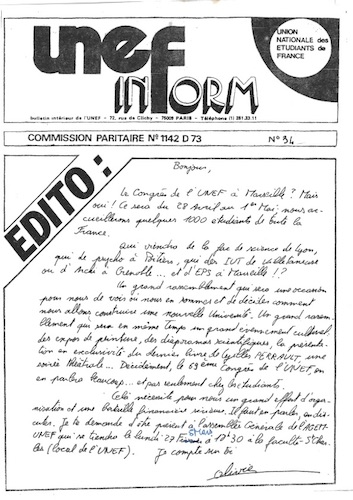 unef
inform
UNION
NATIONALE des
ETUDIANTS de
FRANCE
bulletin intérieur de l'UNEF - 72, rue de Clichy - 75009 PARIS - Téléphone (1) 281.33.11
COMMISSION PARITAIRE Nº 1142 D 73
Nº 34
EDITO :
Bonjour,
Le Congrès de l'UNEF à Marseille ? Mais
oui ! Ce sera du 28 Avril au 1er Mai : nous ac-
cueillerons quelques 1000 étudiants de toute la
France.
Qui viendra de la fac de science de Lyon,
qui de psycho à Poitiers, qui des IUT de Villetaneuse
ou d' à Grenoble ... et d'EPS à Marseille !?
Un grand rassemblement qui sera une occasion
pour nous de voir où nous en sommes et de décider comment
nous allons construire une nouvelle Université. Un grand rassem-
blement qui sera en même temps un grand événement culturel,
des expos de peinture, des diaporamas scientifiques, la présenta-
tion en exclusivité du dernier livre de Gilles PERRAULT, une
soirée théâtrale ... Décidément, le 69ème Congrès de l'UNEF, on
en parlera beaucoup ... et pas seulement chez les étudiants.
Cela nécessite pour nous un grand effort d'orga-
nisation et une bataille financière sérieuse. Il faut en parler, en dis-
cuter. Je te demande d'être présent à l'assemblée Générale de l'AGEM-
UNEF qui se tiendra le lundi 27 à 17H30 à la faculté St Char-
les (local de l'UNEF). Je compte sur toi
Olivier